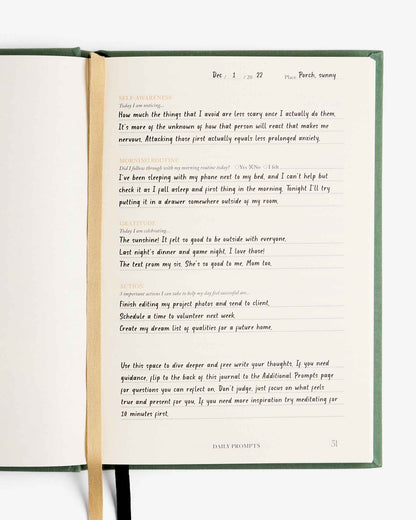 Dec / 1 / 20 22 Place Porch, sunny
SELF-AWARENESS
Today I am noticing...
How much the things that I avoid are less scary once I actually do them.
It's more of the unknown of how that person will react that makes me
nervous. Attacking those first actually equals less prolonged anxiety.
MORNING ROUTINE
Did I follow through with my morning routine today? Yes No I felt
I've been sleeping with my phone next to my bed, and I can't help but
check it as I fall asleep and first thing in the morning. Tonight I'll try
putting it in a drawer somewhere outside of my room.
GRATITUDE
Today I am celebrating...
The sunshine! It felt so good to be outside with everyone.
Last night's dinner and game night. I love those!
The text from my sis. She's so good to me. Mom too.
ACTION
3 important actions I can take to help my day feel successful are...
Finish editing my project photos and send to client.
Schedule a time to volunteer next week.
Create my dream list of qualities for a future home.
Use this space to dive deeper and free write your thoughts. If you need
guidance, flip to the back of this journal to the Additional Prompts page
for questions you can reflect on. Don't judge, just focus on what feels
true and present for you. If you need more inspiration try meditating for
10 minutes first.
DAILY PROMPTS 51